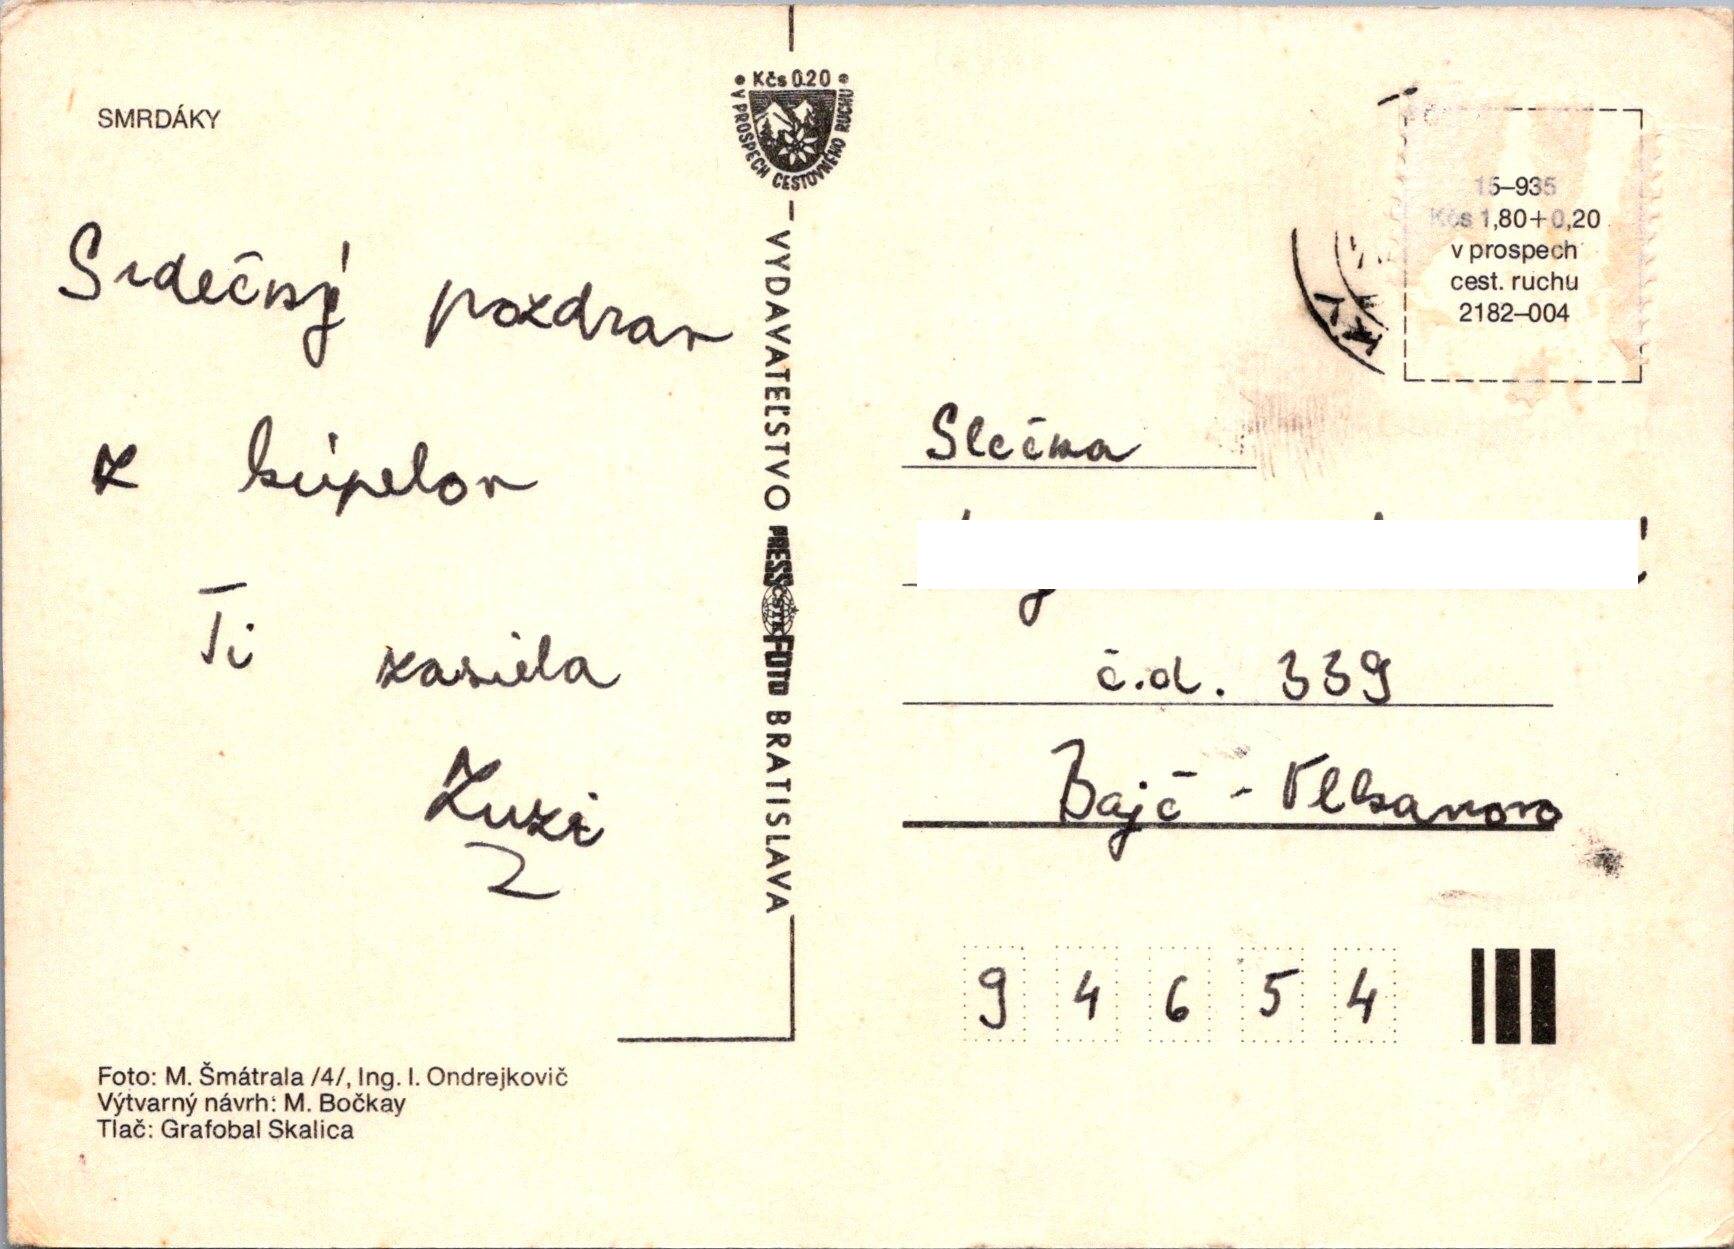 SMRDÁKY
Srdečný pozdrav
z kúpelov
Ti zasiela
Zuzi
Foto: M. Šmátrala /4/, Ing. I. Ondrejkovič
Výtvarný návrh: M. Bočkay
Tlač: Grafobal Skalica
Kčs 0.20
V PROSPECH CESTOVNÉHO RUCHU
VYDAVATEĽSTVO PRESSFOTO BRATISLAVA
ČSTK
15–935
Kčs 1,80+0,20
v prospech
cest. ruchu
2182–004
Slečna
č.d. 339
Bajč - Vlkanovo
94654